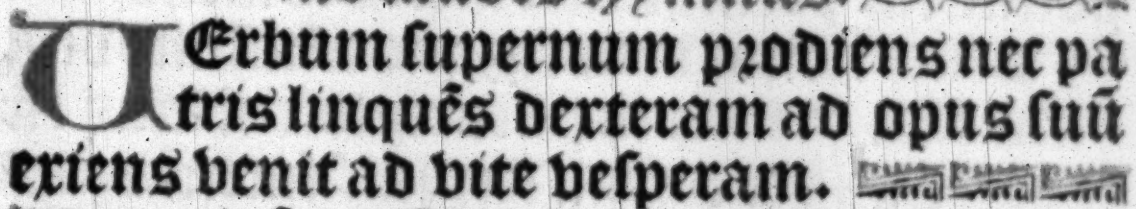 VErbum ſupernum prodiens nec pa
tris linquēs dexteram ad opus ſuū
exiens venit ad vite veſperam.